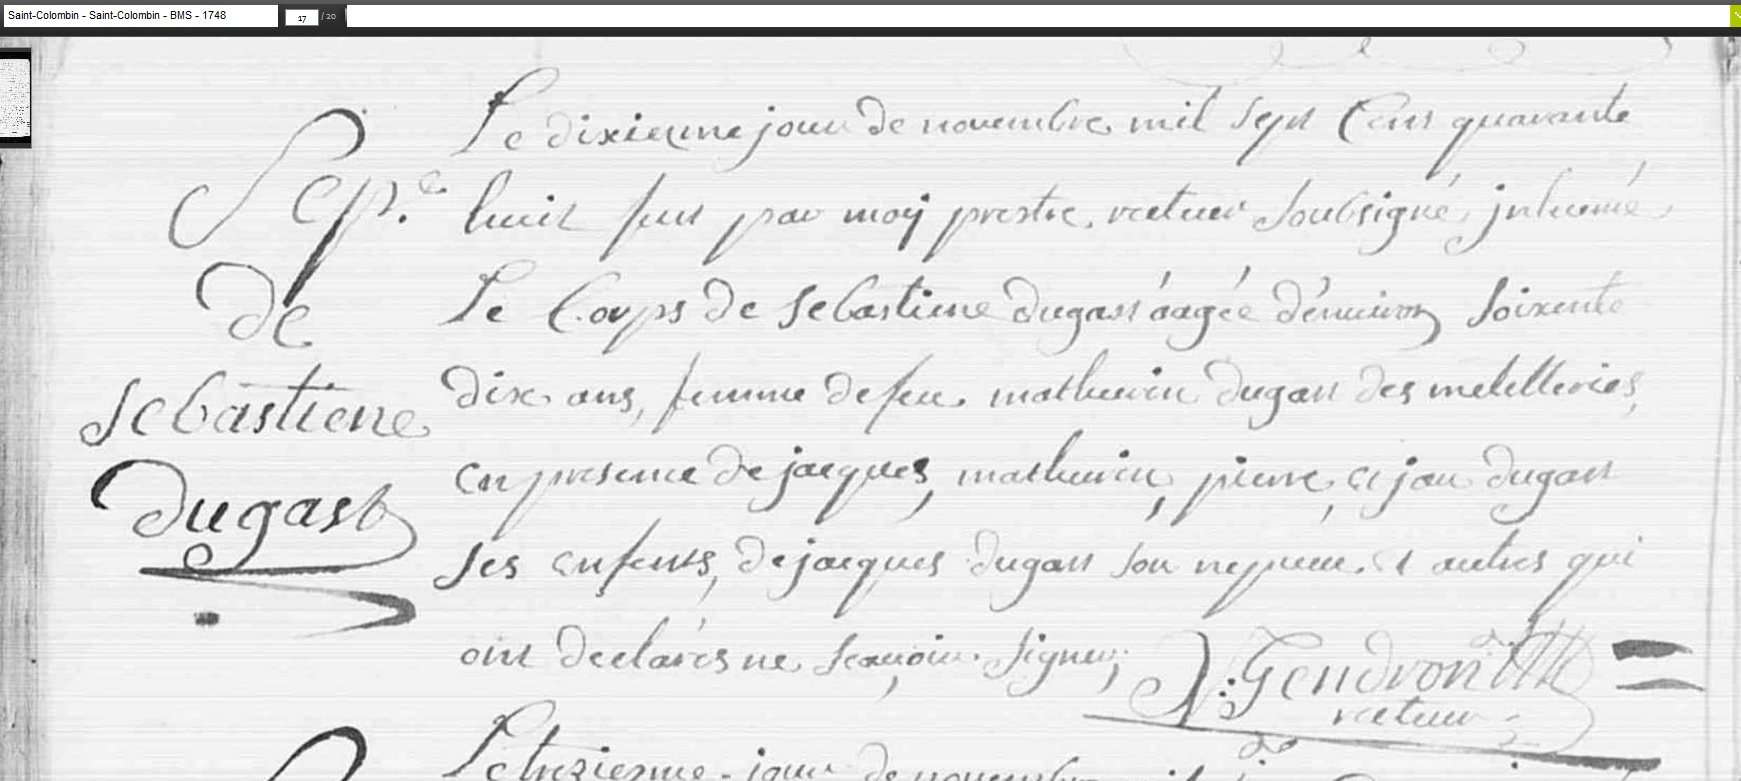 Saint-Colombin - Saint-Colombin - BMS - 1748
17 / 20
Sep.e
de
Sebastiene
dugast
Le dixieme jour de novembre mil sept Cens quarante
huit fut par moy prestre recteur soubsigné, inhumé
Le Corps de Sebastiene dugast aagée d'environ soixente
dix ans, femme de feu mathurin dugast des
en presence de jacques, mathurin, pierre, et jan dugast
ses enfents, de jacques dugast son nepueu et autres qui
ont declarés ne scauoir signer;
J: Gendron
recteur
Le treziesme jour de novembre